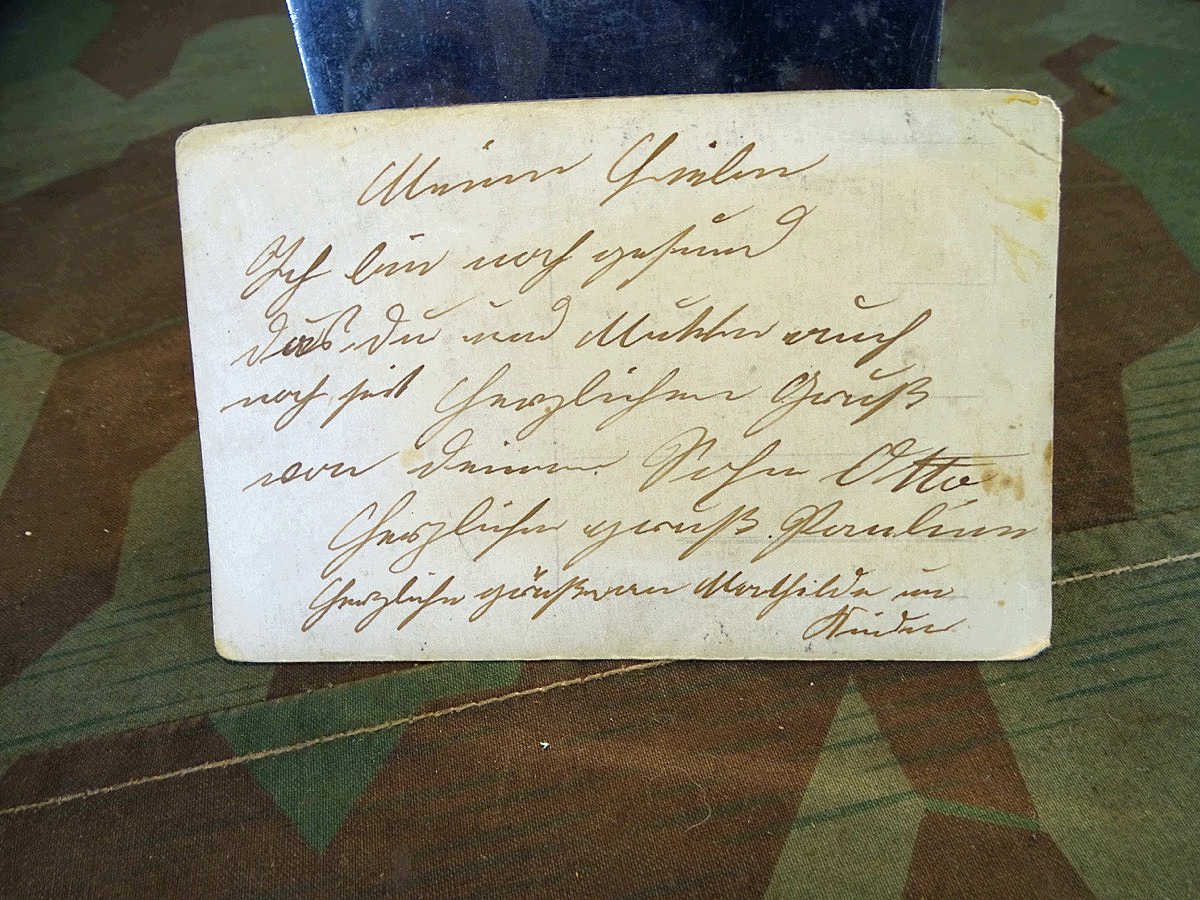 Meine Lieben
Ich bin noch gesund
das du und Mutter auch
noch seit Herzlichen Gruß
von deinem Sohn Otto
Herzliche gruß Pauline
Herzliche grüße an Mathilde un
Kinder